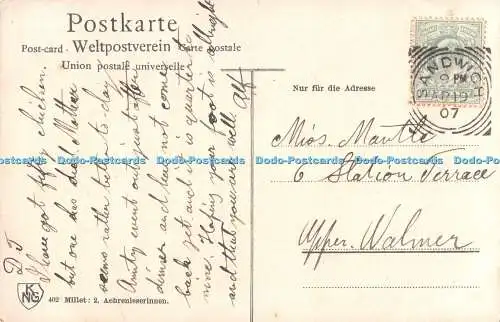 Postkarte
Post-card - Weltpostverein - Carte postale
Union postale universelle
Nur für die Adresse
SANDWICH
9 PM
AP 19
07
Miss. Mantle
6 Station Terrace
Upper. Walmer
D J
I have got fifty chicken.
but one has died Mother
seems rather better to-day
Aunty went out just after
dinner and have not come
back yet and it is quarter to
nine. Hoping your foot is allright
and that you are well Alf
KNG
402 Millet: 2. Aehrenleserinnen.
Dodo-Postcards Dodo-Postcards Dodo-Postcards Dodo-Postcards Dodo-Postcards Dodo-Postcards